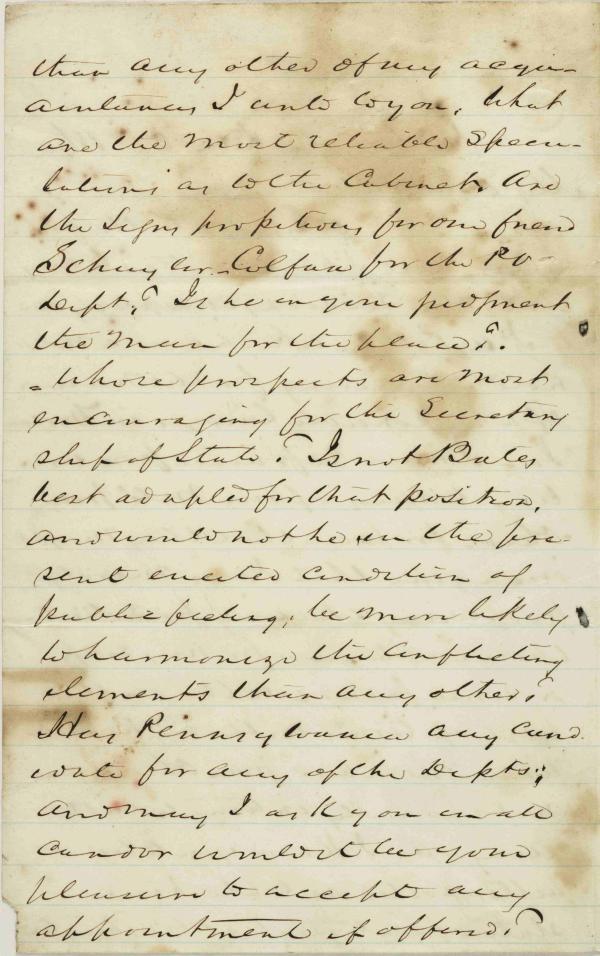 than any other of my acqu-
aintances I write to you. What
are the most reliable specu-
lations as to the Cabinet. Are
the signs propitious for our friend
Schuyler Colfax for the PO
Dept.? Is he in your judgment
the man for the place?.
- Whose prospects are most
encouraging for the Secretary
ship of State? Is not Bates
best adapted for that position,
and would not he in the pre-
sent excited condition of
public feeling, be more likely
to harmonize the conflicting
elements than any other?
Has Pennsylvania any cand
idate for any of the Depts;
and may I ask you in all
candor would it be your
pleasure to accept any
appointment if offered?